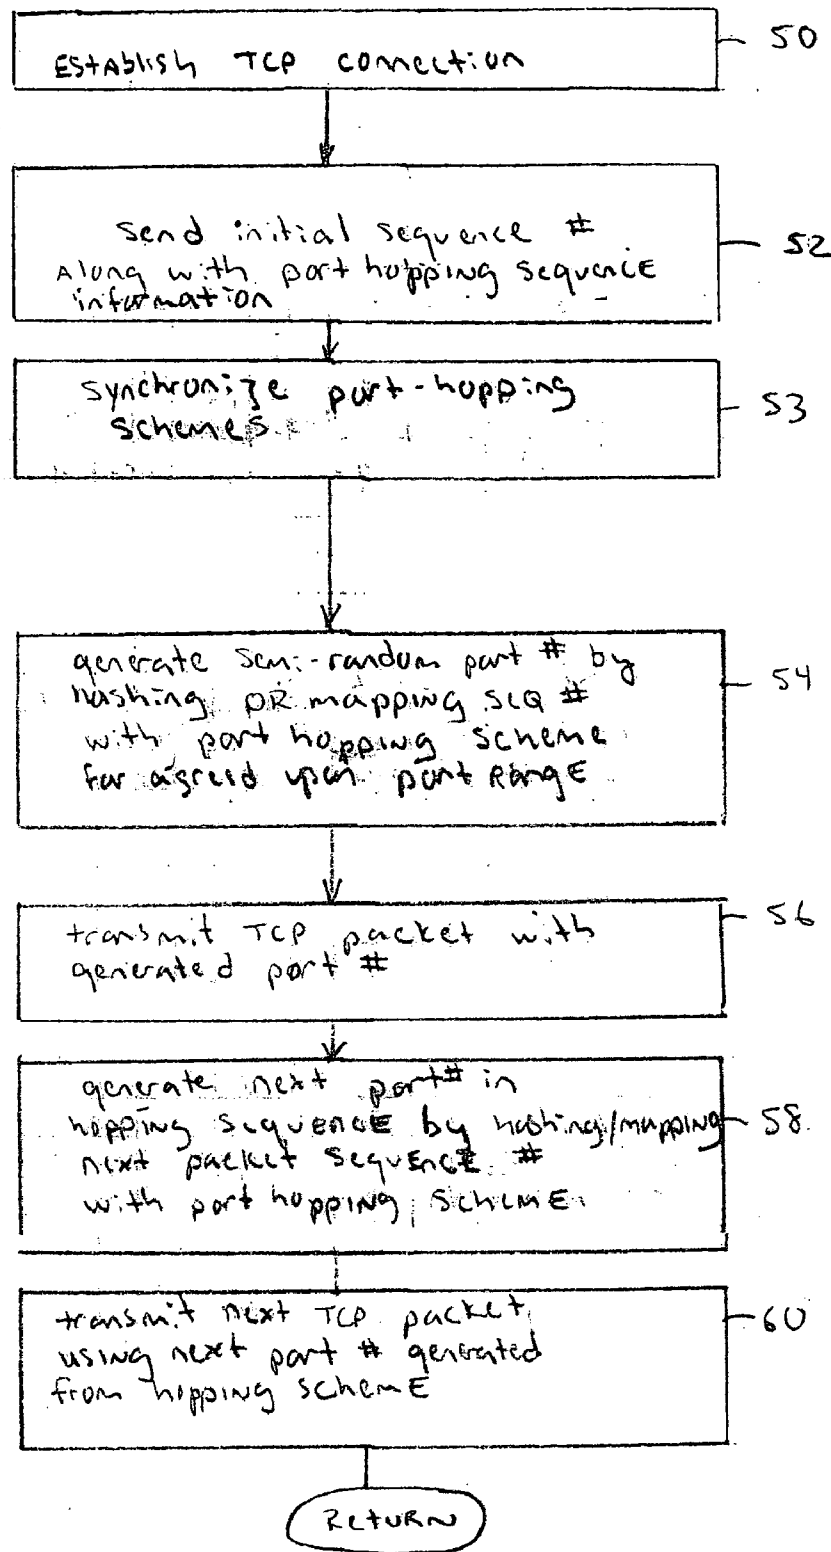 EstAblish TCP connection
50
send initial sequence #
Along with port hopping sequence
information
52
synchronize port-hopping
schemes
53
generate semi-random port # by
hashing OR mapping SEQ #
with port hopping scheme
for agreed upon port RangE
54
transmit TCP packet with
generated port #
56
generate next port# in
hopping sequence by hashing/mapping
next packet sequence #
with port hopping SchemE.
58
transmit next TCP packet
using next port # generated
from hopping schemE
60
RetURN